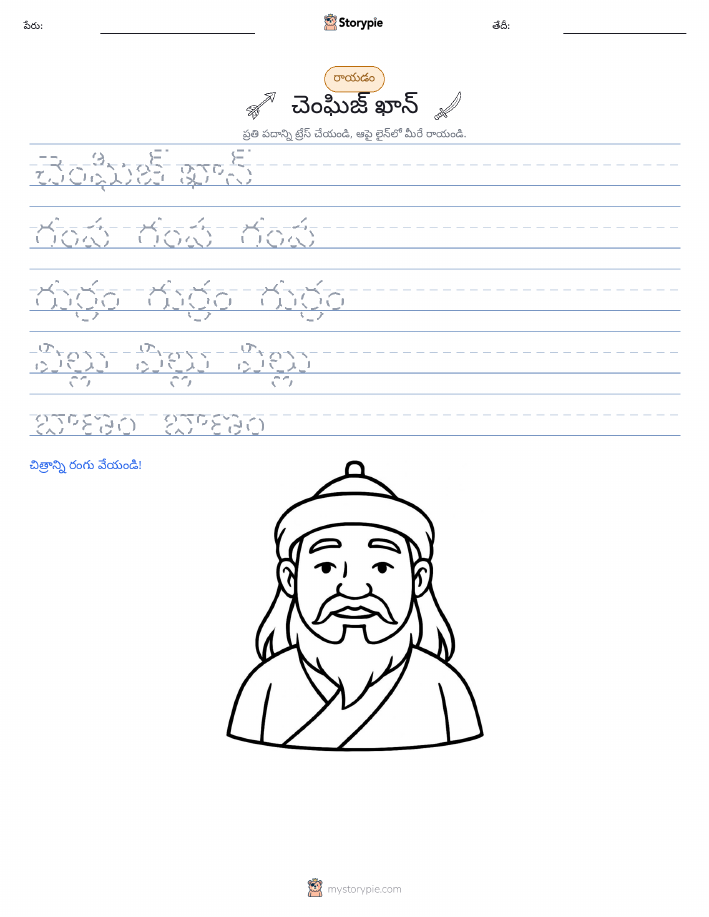 పేరు:
Storypie
తేదీ:
రాయడం
చెంఘిజ్ ఖాన్
ప్రతి పదాన్ని ట్రేస్ చేయండి, ఆపై లైన్‌లో మీరే రాయండి.
చెంఘిజ్ ఖాన్
గంప గంప గంప
గుర్రం గుర్రం గుర్రం
విల్లు విల్లు విల్లు
బాణం బాణం
చిత్రాన్ని రంగు వేయండి!
mystorypie.com